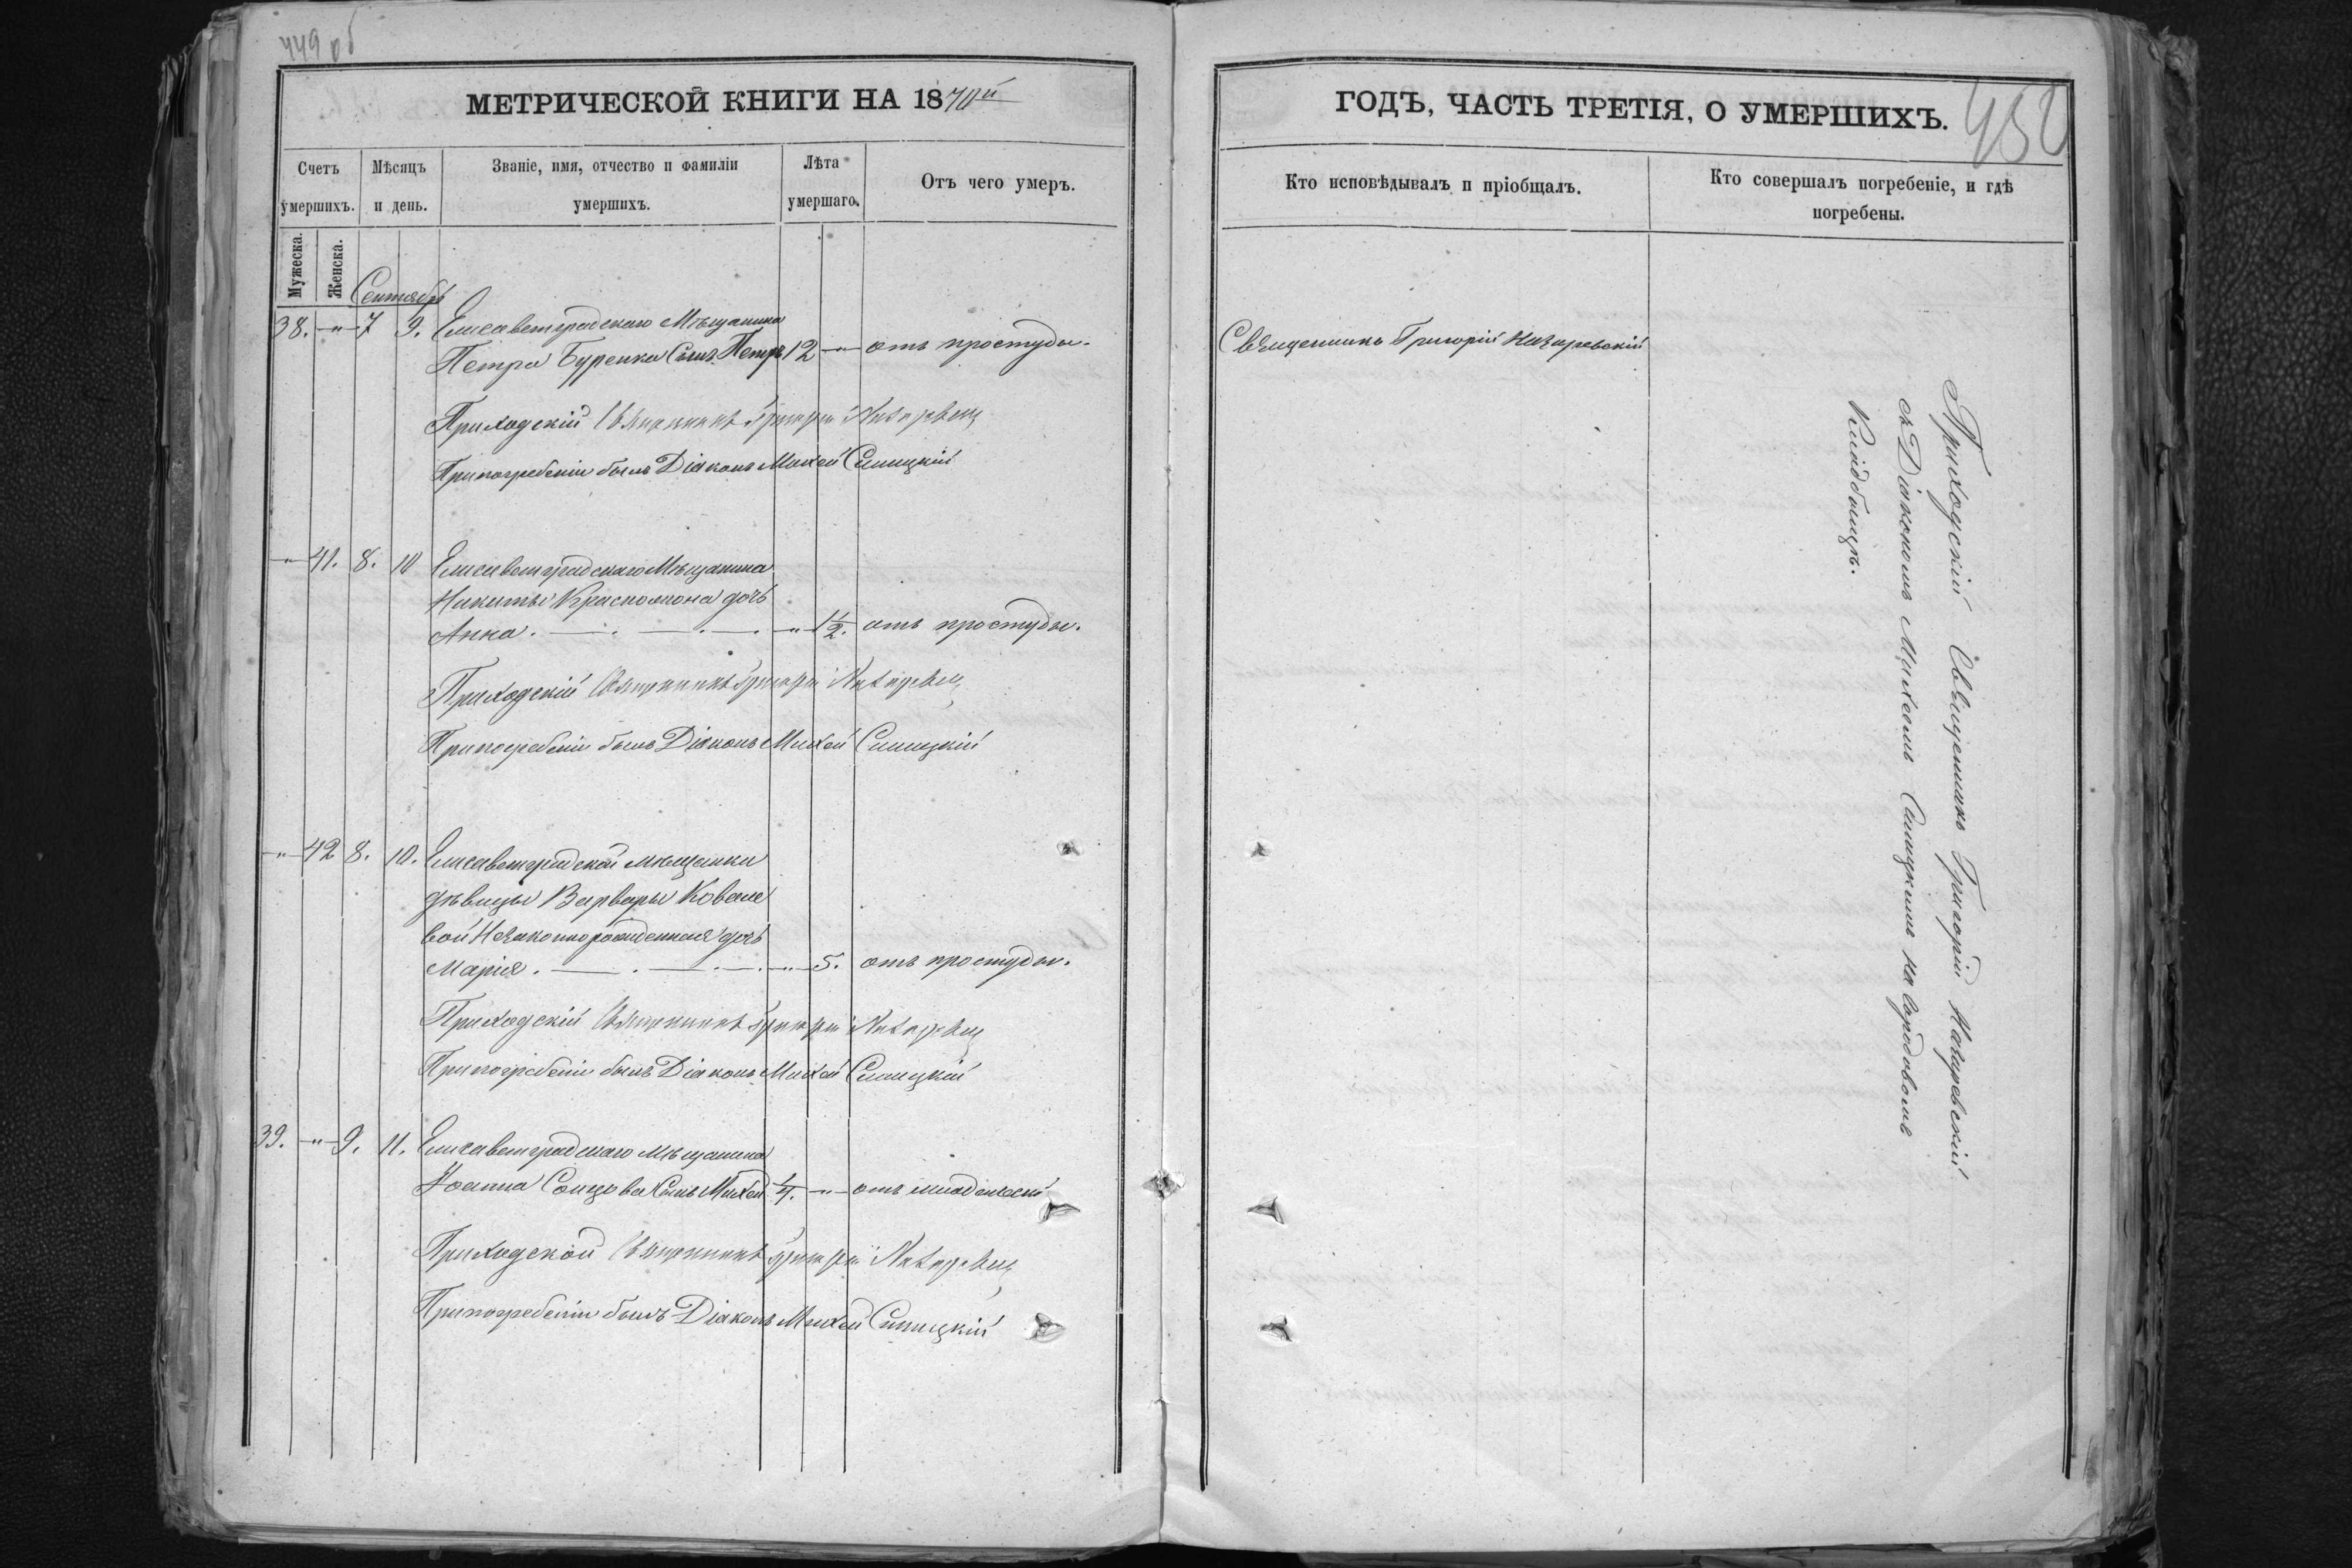 449 об
МЕТРИЧЕСКОЙ КНИГИ НА 1870й
Счетъ умершихъ.
Мѣсяцъ и день.
Званіе, имя, отчество и фамиліи умершихъ.
Лѣта умершаго.
Отъ чего умеръ.
Мужеска.
Женска.
Сентябрь
38. -"- 7 9. Елисаветградскаго Мѣщанина
Петра Буренка Сынъ Петръ 12 -"- отъ простуды.
Приходскій Священникъ Григорій Назаревскій
Припогребеніи былъ Діаконъ Михей Синицкій
-"- 41. 8. 10 Елисаветградскаго Мѣщанина
Никиты дочь
Анна. -"- 1/2. отъ простуды.
Приходскій Священникъ Григорій Назаревскій
Припогребеніи былъ Діаконъ Михей Синицкій
-"- 42 8. 10. Елисаветградской мѣщанки
дѣвицы Варвары Ковале
вой Незаконнорожденная дочь
Марія. -"- 5. отъ простуды.
Приходскій Священникъ Григорій Назаревскій
Припогребеніи былъ Діаконъ Михей Синицкій
39. -"- 9. 11. Елисаветградскаго мѣщанина
Іоанна Сонцова Сынъ Михей 1/4. -"- отъ младенческ
Приходской Священникъ Григорій Назаревскій
Припогребеніи былъ Діаконъ Михей Синицкій
ГОДЪ, ЧАСТЬ ТРЕТІЯ, О УМЕРШИХЪ.
450
Кто исповѣдывалъ и пріобщалъ.
Кто совершалъ погребеніе, и гдѣ
погребены.
Священникъ Григорій Назаревскій
Приходскій Священникъ Григорій Назаревскій
съ Діакономъ Михеемъ Синицкимъ на городовомъ
Кладбищѣ.